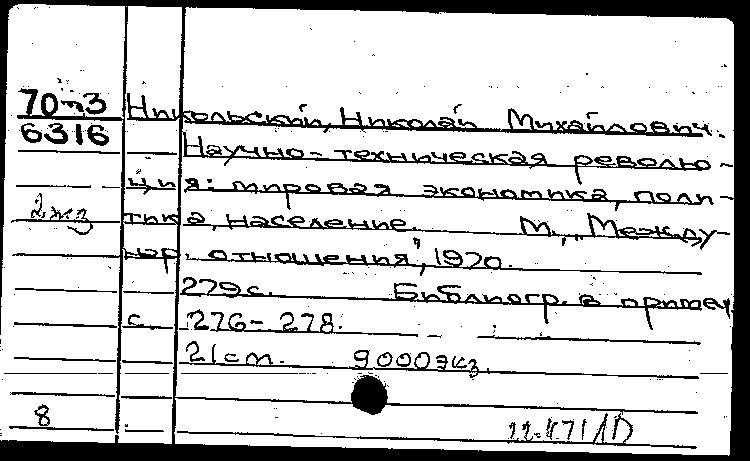 70-3
6316
Никольский, Николай Михайлович.
Научно-техническая револю-
ция: мировая экономика, поли-
тика, население. М., „Между-
нар. отношения", 1970.
279с. Библиогр. в примеч.
с. 276-278.
21см. 9000экз.
2 экз
8